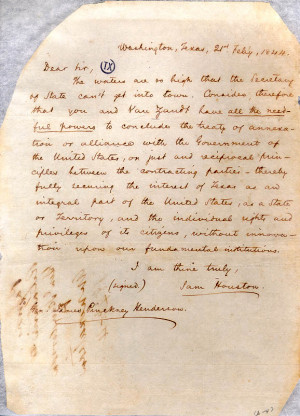 Washington, Texas, 21st Feb'y, 1844.
Dear Sir, IX
The waters are so high that the Secretary
of State can't get into town. Consider therefore
that you and Van Zandt have all the need-
ful powers to conclude the treaty of annexa-
tion or alliance with the Government of
the United States, on just and reciprocal prin-
ciples between the contracting parties - thereby
fully securing the interest of Texas as an
integral part of the United States, as a State
or Territory, and the individual rights and
privileges of its citizens, without innova-
tion upon our fundamental institutions.
I am thine truly,
(signed) Sam Houston.
Pinckney Henderson.